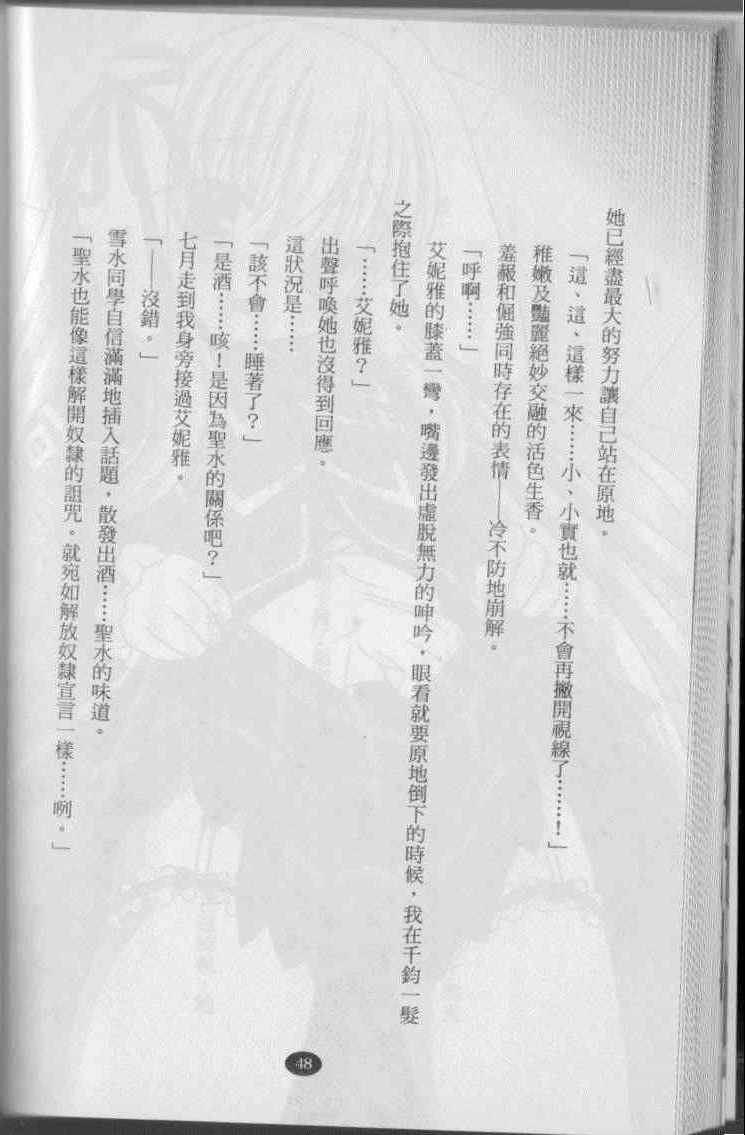 她已經盡最大的努力讓自己站在原地。
「這、這、這樣一來……小、小實也就……不會再撇開視線了……！」
稚嫩及豔麗絕妙交融的活色生香。
羞赧和倔強同時存在的表情——冷不防地崩解。
「呼啊……」
艾妮雅的膝蓋一彎，嘴邊發出虛脫無力的呻吟，眼看就要原地倒下的時候，我在千鈞一髮
之際抱住了她。
「……艾妮雅？」
出聲呼喚她也沒得到回應。
這狀況是……
「該不會……睡著了？」
「是酒……咳！是因為聖水的關係吧？」
七月走到我身旁接過艾妮雅。
「——沒錯。」
雪水同學自信滿滿地插入話題，散發出酒……聖水的味道。
「聖水也能像這樣解開奴隸的詛咒。就宛如解放奴隸宣言一樣……咧。」
48